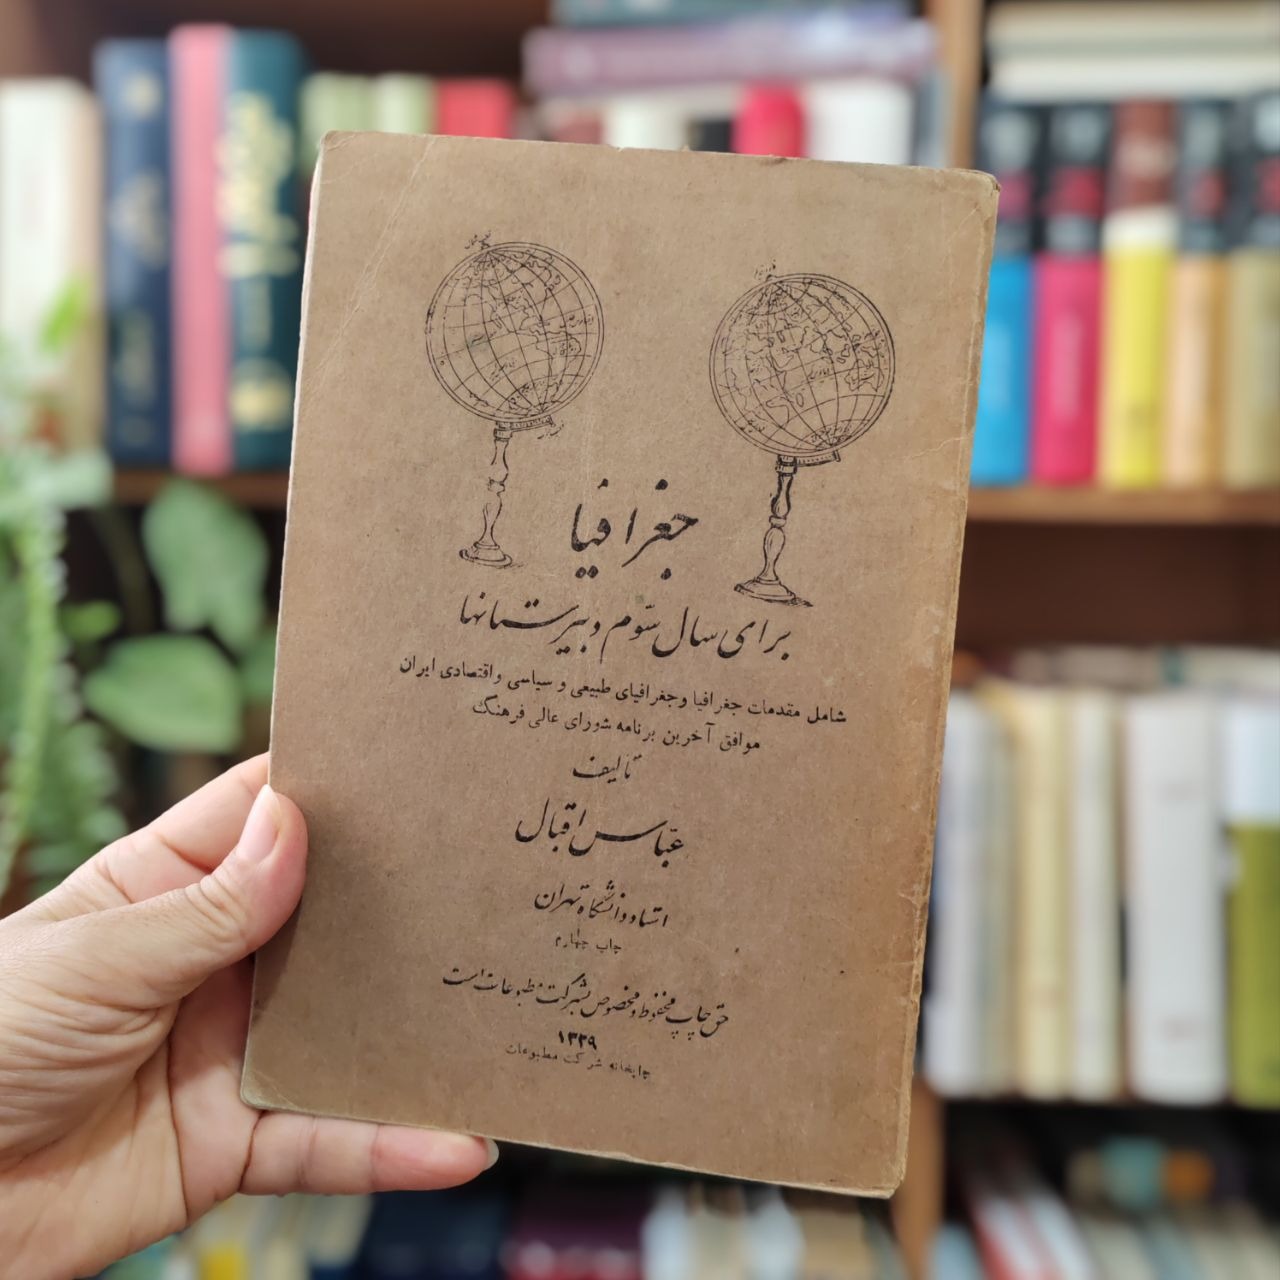 جغرافیا
برای سال سّوم دبیرستانها
شامل مقدمات جغرافیا و جغرافیای طبیعی و سیاسی و اقتصادی ایران
موافق آخرین برنامه شورای عالی فرهنگ
تألیف
عبّاس اقبال
استاد دانشگاه تهران
چاپ چهارم
حق چاپ محفوظ و مخصوص بشرکت مطبوعات است
۱۳۳۹
چاپخانه شرکت مطبوعات